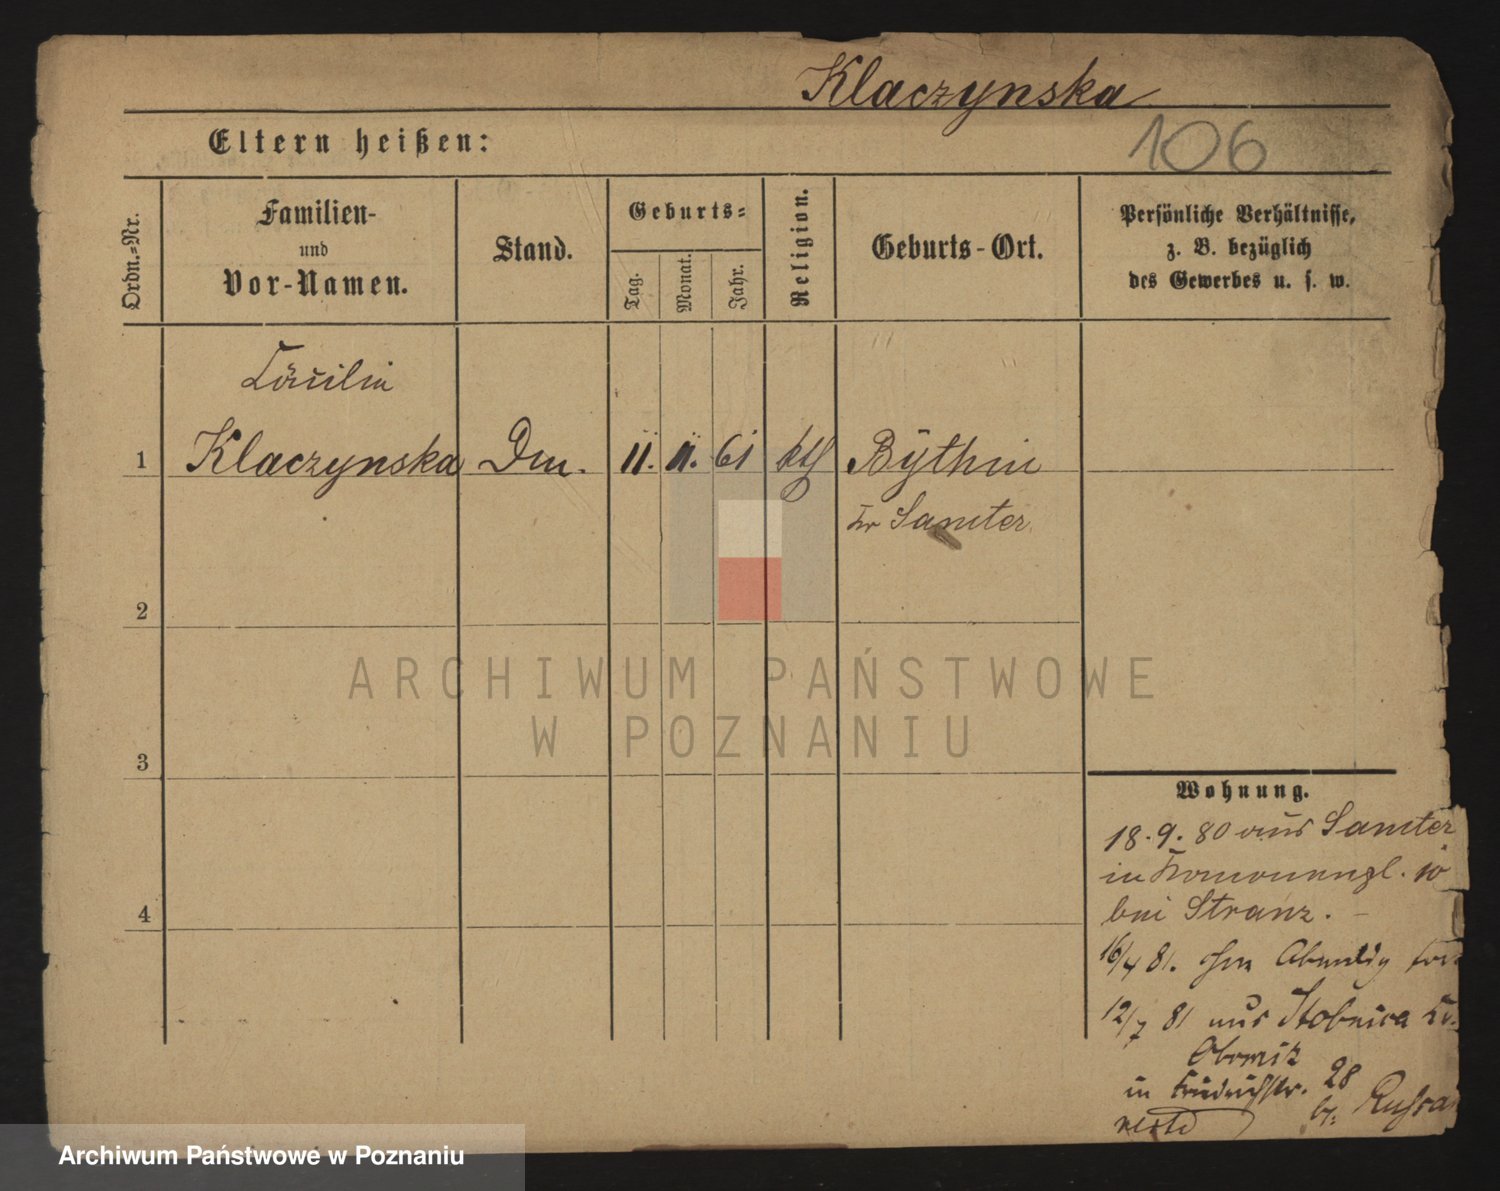 Klaczynska
106
Eltern heißen:
Ordn.-Nr.
Familien-
und
Vor-Namen.
Stand.
Geburts-
Tag.
Monat.
Jahr.
Religion.
Geburts-Ort.
Persönliche Verhältnisse,
z. B. bezüglich
des Gewerbes u. s. w.
Cäcilie
1 Klaczynska 11. 11. 61 kth Bythin
Kr Samter
2
3
4
ARCHIWUM PAŃSTWOWE
W POZNANIU
Wohnung.
18.9.80 aus Samter
in 10
bei Stranz.
16/4 81.
12/7 81 aus Stobnica Kr.
Obornik
in Friedrichstr. 28
Archiwum Państwowe w Poznaniu